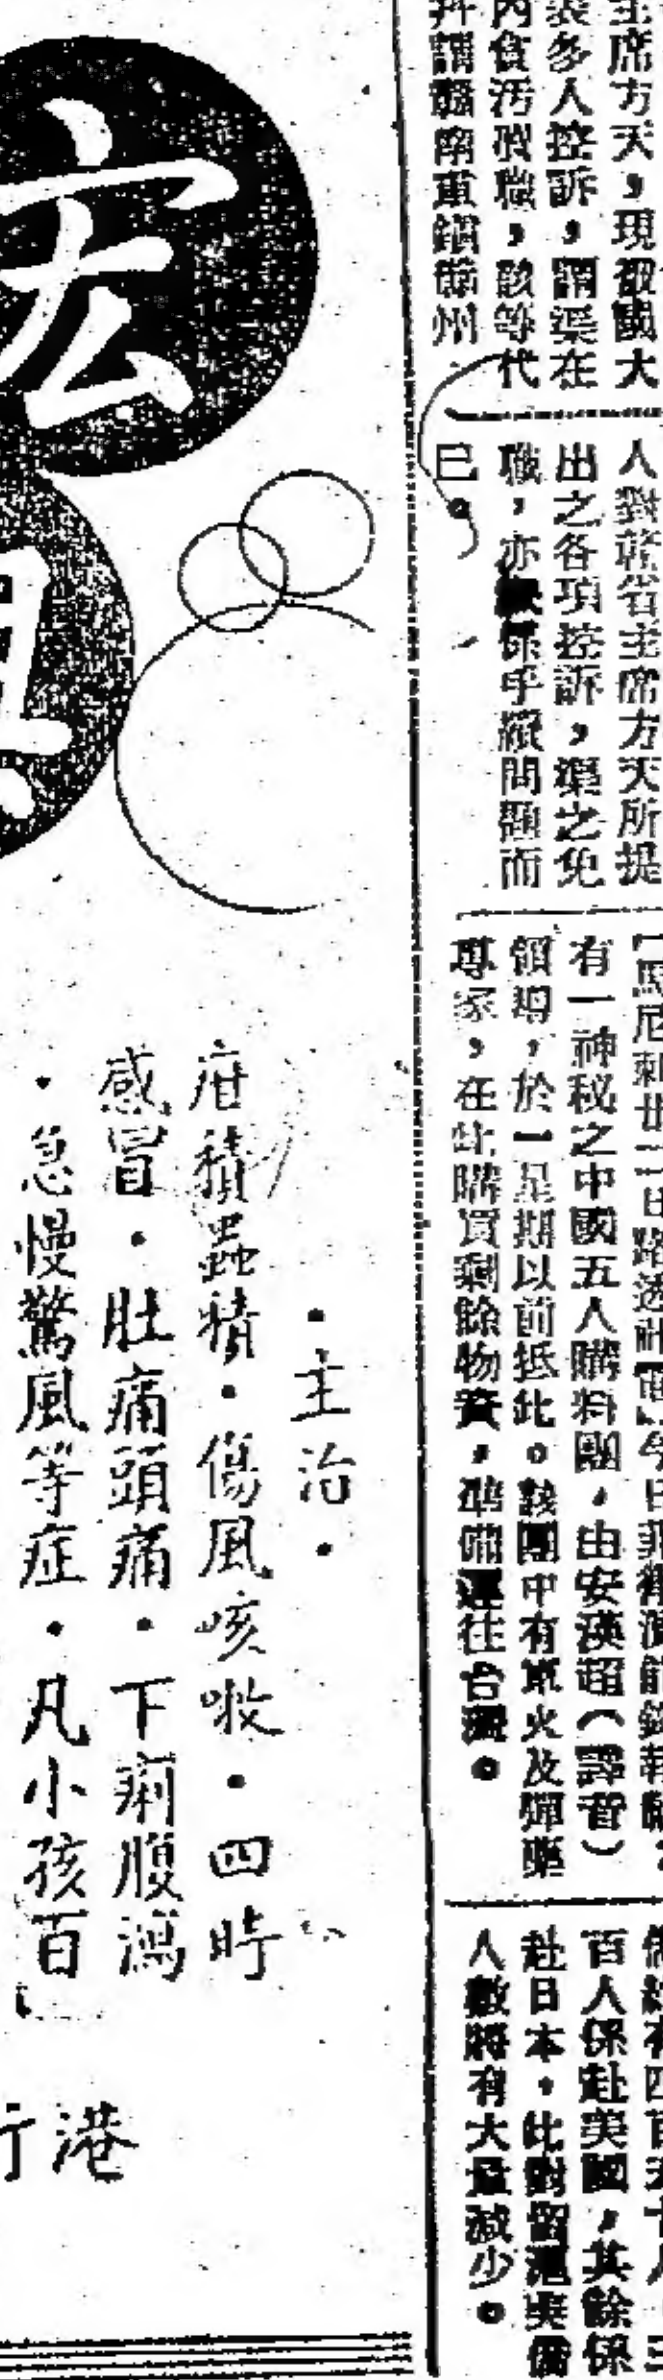 主席方天，現被國大
表多人控訴，謂渠在
內貪污瀆職，該等代
州
人對贛省主席方天所提
出之各項控訴，渠之免
職，亦係乎縱問題而
已。
【馬尼剌廿二日路透社電】今日菲律濱
有一神秘之中國五人購料團，由安漢超（譯音）
領導，於一星期以前抵此。該團中有軍火及彈藥
專家，在此購買剩餘物資，準備運往台灣。
百人係赴美國，其餘係
赴日本，此對留滬美僑
人數將有大量減少。
宏
興
·主治·
疳積蟲積·傷風咳嗽·四時
感冒·肚痛頭痛·下痢腹瀉
·急慢驚風等症·凡小孩百
港
行